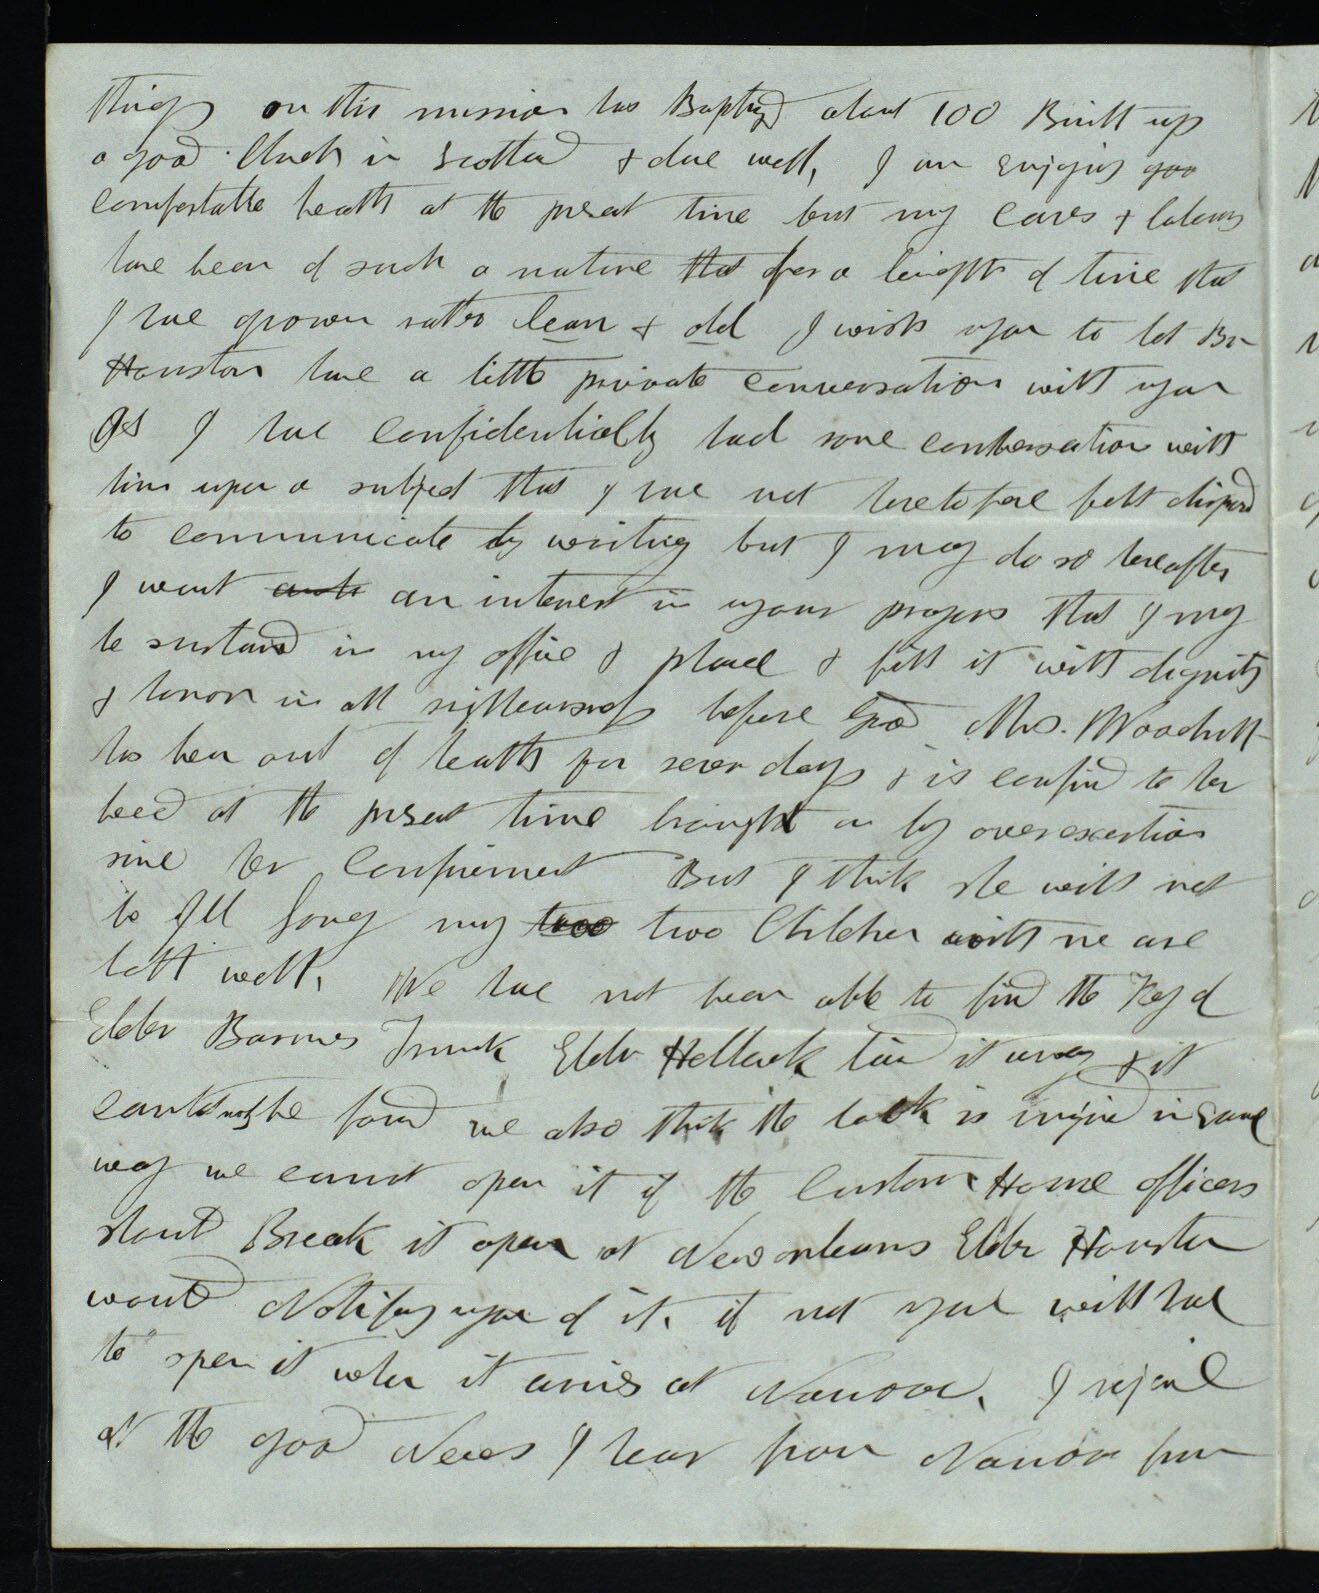 things on this mission has Baptizd about 100 Built up
a good Church in Scotland & done well, I am enjoying goo
comfortable health at the present time but my cares & labours
have been of such a nature that for a length of time that
I have grown rather lean & old I wish you to let Br
Houston have a little private conversation with you
As I have confidentially had some conversation with
him upon a subject that I have not heretofore felt disposed
to communicate by writing but I may do so hereafter
I want an interest in your prayers that I may
be sustaind in my office & place & fill it with dignity
& honor in all righteousness before God Mrs. Woodruff
has been out of health for several days & is confind to her
beed at the present time brought on by over exertion
since her confinement But I think she will not
be Ill long my two two Children with me are
both well, We have not been able to find the Key of
Elder Barnes Trunk Elder Hedlock laid it away & it
cannot be found we also think the lock is injured in some
way we cannot open it if the Custom House officers
should Break it open at New orleans Elder Houston
would Notify you of it, if not you will have
to open it when it arives at Nauvoo, I rejoice
at the good News I hear from Nauvoo from